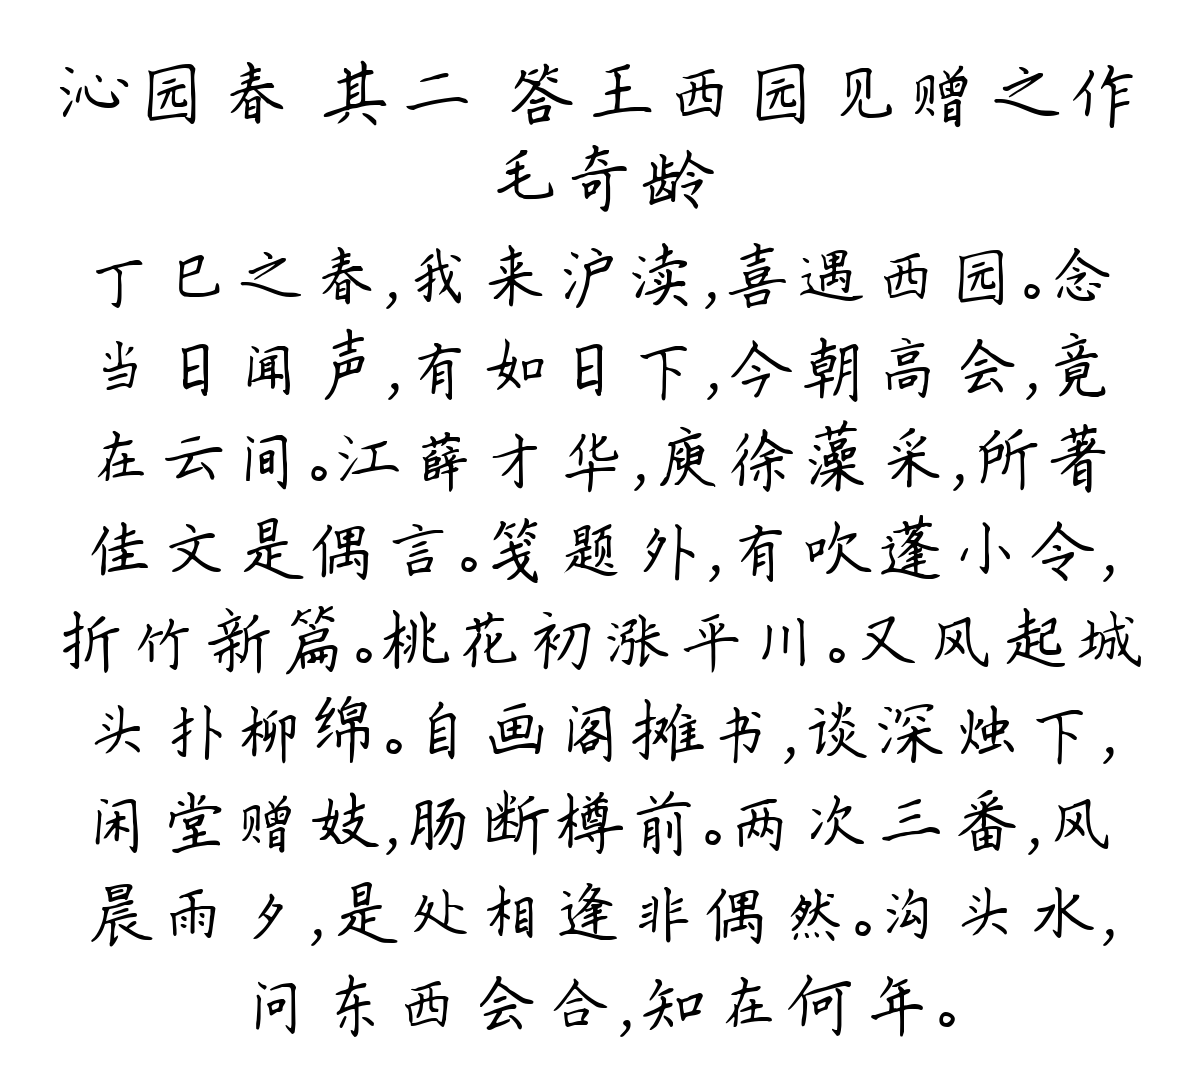 沁园春 其二 答王西园见赠之作
毛奇龄
丁巳之春,我来沪渎,喜遇西园。念
当日闻声,有如日下,今朝高会,竟
在云间。江薛才华,庾徐藻采,所著
佳文是偶言。笺题外,有吹蓬小令,
折竹新篇。桃花初涨平川。又风起城
头扑柳绵。自画阁摊书,谈深烛下,
闲堂赠妓,肠断樽前。两次三番,风
晨雨夕,是处相逢非偶然。沟头水,
问东西会合,知在何年。